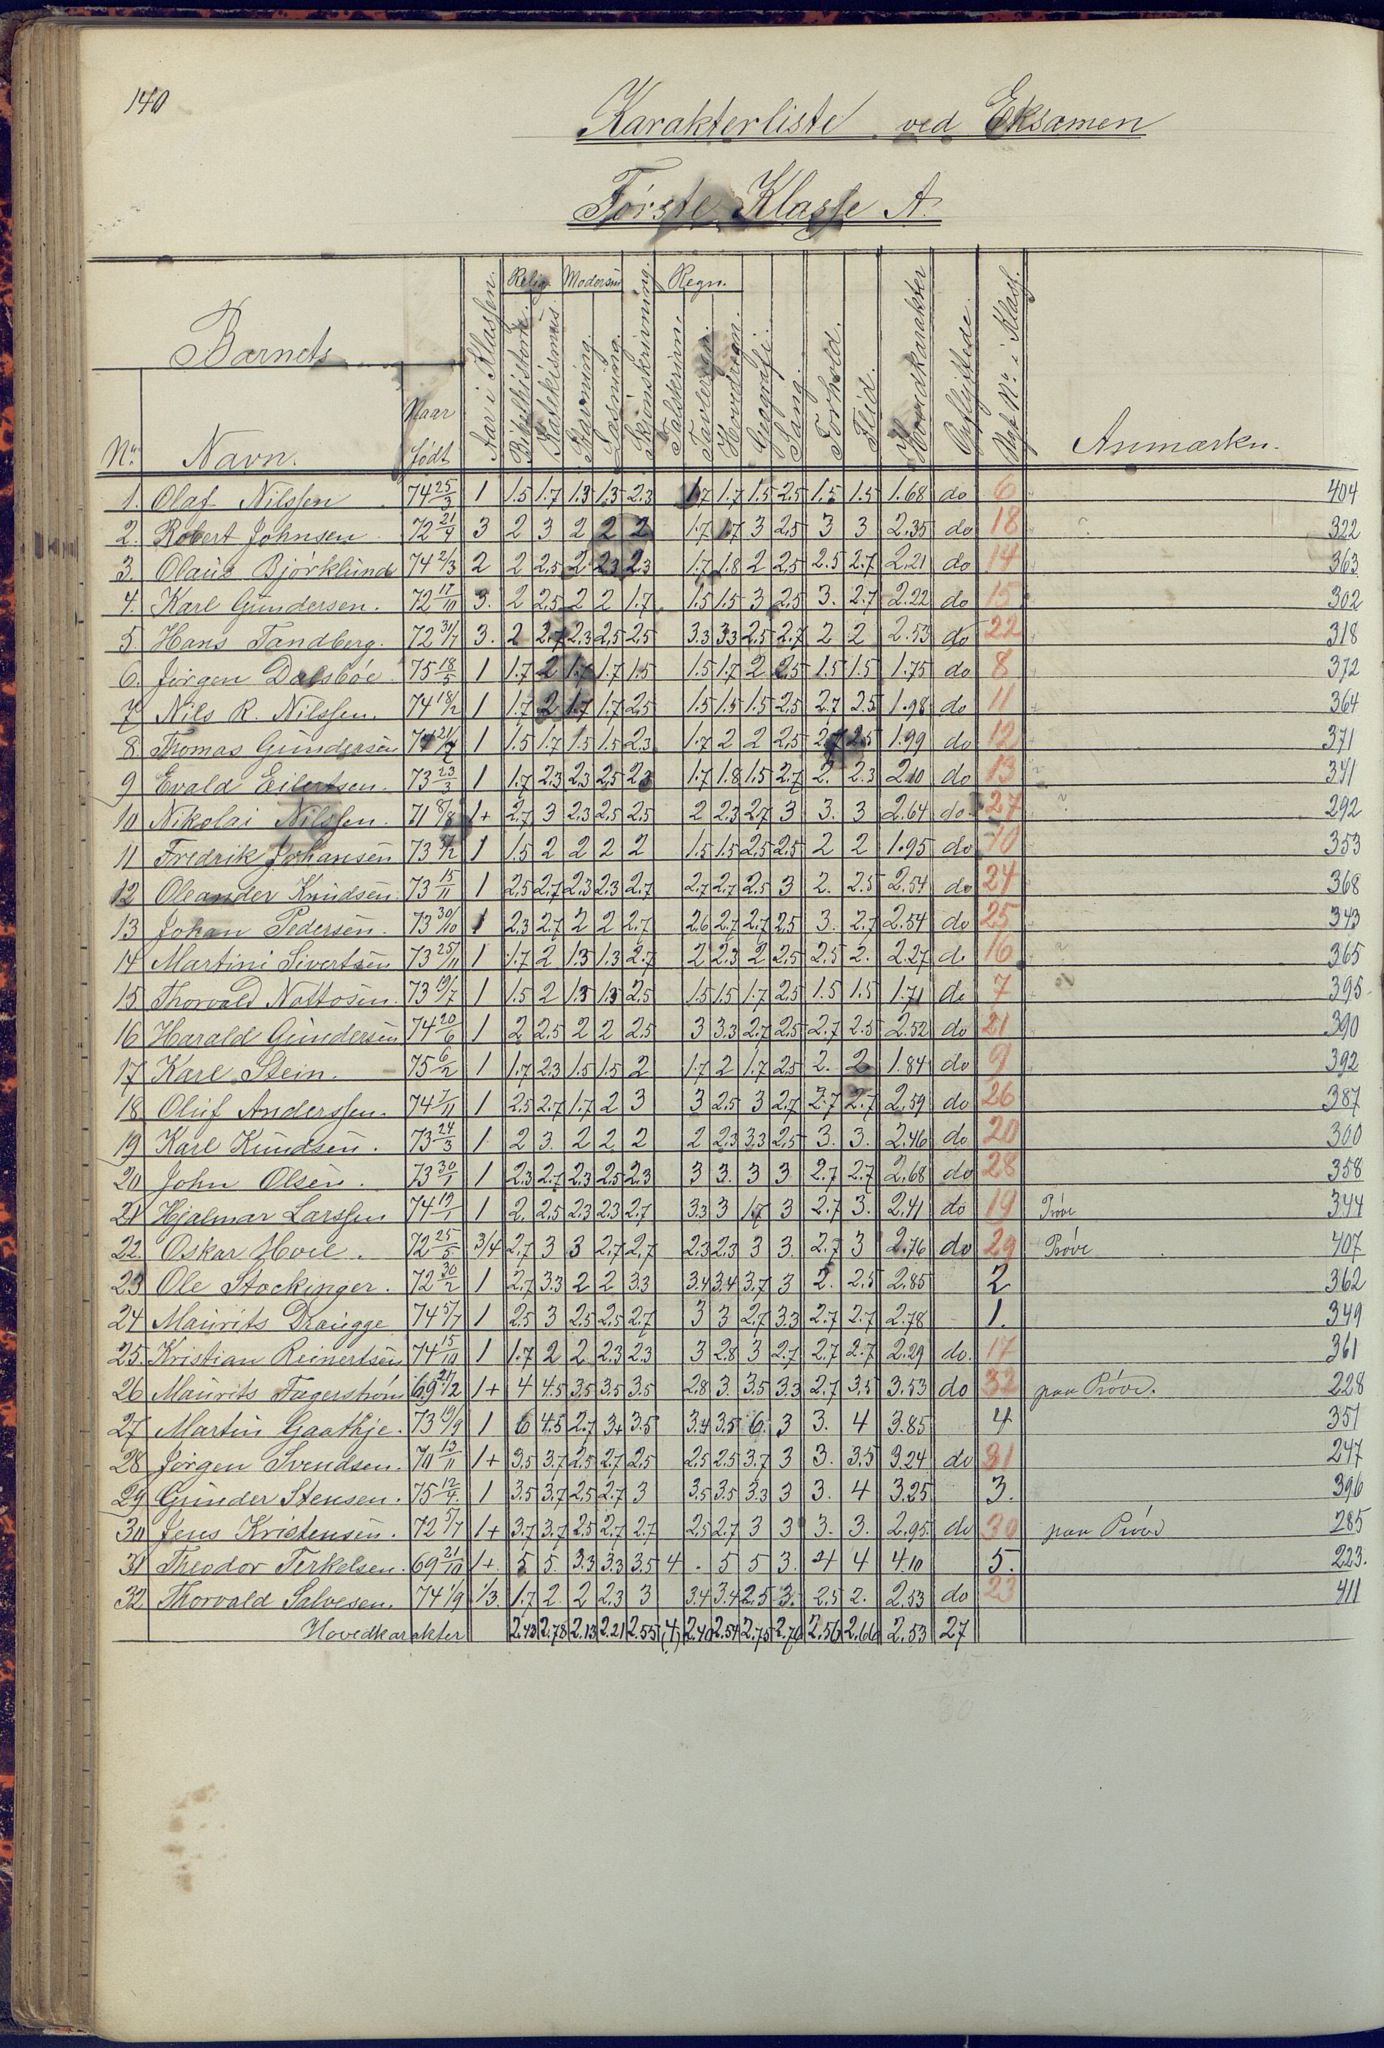 140
Karakterliste ved Eksamen
Første Klasse A.
Barnets
No. Navn. Naar født Aar i Klassen. Relig. Bibelhistorie. Katekismus. Modersm. Stavning. Læsning. Skjønskrivning. Regn. Talskrivn. Tavleregn. Hovedregn. Geografi. Sang. Forhold. Flid. Hovedkarakter Opflyttede. Nyt No. i Klass. Anmærkn.
1. Olaf Nilssen 74 25/3 1 1.5 1.7 1.3 1.3 2.3 1.7 1.7 1.5 2.5 1.5 1.5 1.68 do 6 404
2. Robert Johnsen 72 21/4 3 2 3 2 2 2 1.7 1.7 3 2.5 3 3 2.35 do 18 322
3. Olaus Bjørklund 74 2/3 2 2 2.5 2 2.3 2.3 1.7 1.8 2 2.5 2.5 2.7 2.21 do 14 363
4. Karl Gundersen. 72 17/10 3. 2 2.5 2 2 1.7 1.5 1.5 3 2.5 3. 2.7 2.22 do 15 302
5 Hans Tandberg. 72 31/7 3. 2 2.7 2.3 2.5 2.5 3.3 3.3 2.5 2.7 2 2 2.53 do 22 318
6. Jørgen Dalsbøe 75 18/5 1 1.7 2 1.7 1.7 1.5 1.5 1.7 2 2.5 1.5 1.5 1.75 do 8 372
7 Nils R. Nilssen. 74 18/2 1 1.7 2 1.7 1.7 2.5 1.5 1.5 1.5 2.5 2.7 2.5 1.98 do 11 364
8 Thomas Gundersen 74 1 1.5 1.7 1.5 1.5 2.3 1.7 2 2 2.5 2.7 2.5 1.99 do 12 371
9 Evald Eilertsen. 73 23/3 1 1.7 2.3 2.3 2.5 2.3 1.7 1.8 1.5 2.7 2. 2.3 2.10 do 13 341
10 Nikolai Nilssen. 71 8/8 1+ 2.7 3 2.3 2.5 2.5 2 2.3 2.7 3 3. 3 2.64 do. 27 292
11 Fredrik Johansen 73 1 1.5 2 2 2 2 1.5 1.5 2.5 2.5 2 2 1.95 do 10 353
12 Oleander Knudsen. 73 15/11 1 2.5 2.7 2.3 2.3 2.7 2.7 2.7 2.5 3 2. 2.5 2.54 do 24 368
13 Johan Pedersen. 73 30/10 1 2.3 2.7 2 2 2.7 2.6 2.7 2.7 2.5 3. 2.7 2.54 do 25 343
14 Martini Sivertsen 73 25/11 1 1.7 2 1.3 1.3 2.7 2 2.3 2 2.5 2.5 2. 2.27 do 16 365
15 Thorvald Nattosen. 73 19/7 1 1.5 2 1.3 1.3 2.5 1.5 1.5 1.7 2.5 1.5 1.5 1.71 do 7 395
16 Harald Gundersen 74 20/6 1 2 2.5 2 2 2.5 3 3.3 2.7 2.5 2.7 2.5 2.52 do 21 390
17 Karl Stein. 75 6/2 1 1.7 2.3 1.5 1.5 2 1.7 2 1.7 2.5 2. 2 1.84 do 9 392
18 Oluf Anderssen. 74 7/11 1 2.5 2.7 1.7 2 3 3 2.5 3 2.7 2.7 2.7 2.59 do 26 387
19 Karl Knudsen. 73 24/3 1. 2 3. 2 2 2 2 2.3 3.3 2.5 3. 3. 2.46 do 20 300
20 John Olsen. 73 30/1 1 2.3 2.7 2.3 2.5 2.3 3 3. 3 3 2.7 2.7 2.68 do 28 358
21 Hjalmar Larssen 74 19/1 1 2. 2.5 2.3 2.3 2.7 3.3 3 1.7 3 2.7 3. 2.41 do 19 Prøve 344
22. Oskar Hvie. 72 25/5 3/4 2.7 3 3 2.7 2.7 2.3 2.3 3 3 2.7 3 2.76 do 29 Prøve 407
23 Ole Stockinger. 72 30/2 1 2.7 3.3 2 2 3.3 3.4 3.4 3.7 3 2. 2.5 2.85 2 362
24 Maurits Drangge 74 5/7 1 2.5 3 2.5 2.5 2.7 3 3 2.7 3.3 2.7 2.7 2.78 1. 349
25. Kristian Reinertsen 74 15/10 1 1.7 2 2 2.3 2.3 3 2.8 3 2.7 2.7 2.7 2.29 do. 17 361
26 Maurits Fagerstrøm 69 21/12 1+ 4 4.5 3.5 3.5 3.5 2.8 3. 3.5 3.3 2.7 3.5 3.53 do 32 paa Prøve. 228
27 Martin Gaathje. 73 19/9 1 6 4.5 2.7 3+ 3.5 3.4 3.5 6. 3 3. 4 3.85 4 351
28 Jørgen Svendsen. 70 13/11 1+ 3.5 3.7 2.5 2.7 2.5 2.5 2.5 3.7 3 3. 3.5 3.24 do 31 247
29 Gunder Stensen. 75 12/4. 1 3.5 3.7 2.5 2.7 3 3.5 3.5 3.3 3 3. 4 3.25 3. 396
30 Jens Kristensen. 72 5/7 1+ 3.7 3.7 2.5 2.7 2.7 2.5 2.7 3 3 3. 3. 2.95 do 30 paa Prøve 285
31 Theodor Terkelsen. 69 21/10 1+. 5 5. 3.3 3.3 3.5 4 . 5 5 3. 4 4 4.10 5. 223.
32 Thorvald Salvesen. 74 1/9 1/3. 1.7 2. 2 2.3 3 3.4 3.4 2.5 3. 2.5 2. 2.53 do 23 411
Hovedkarakter 2.43 2.78 2.13 2.21 2.55 (4) 2.40 2.54 2.75 2.76 2.56 2.66 2.53 27
25
30